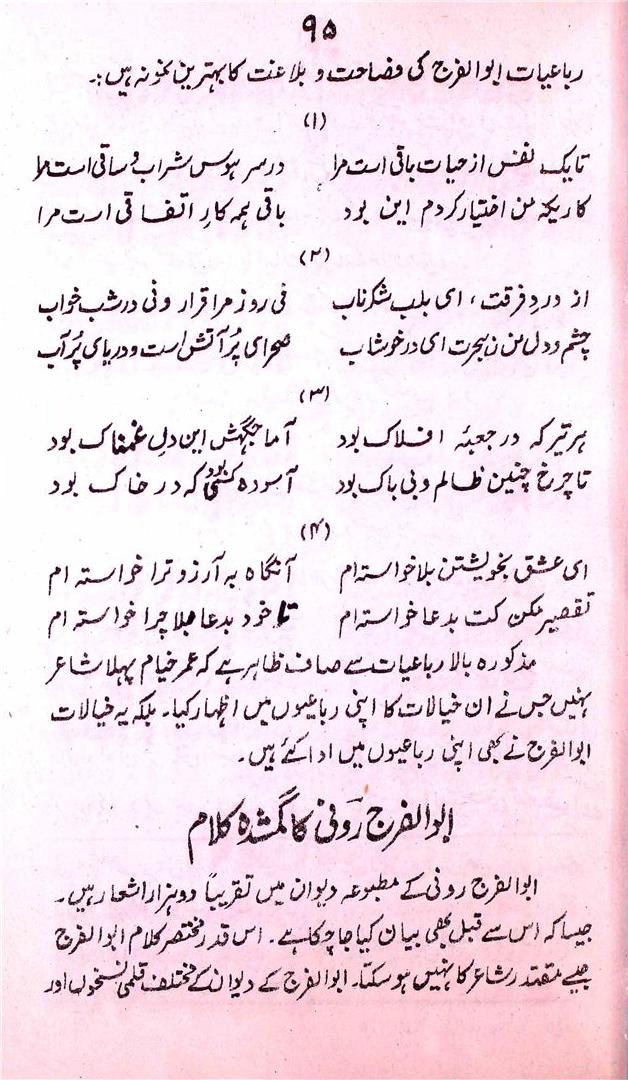 ۹۵
رباعیات ابوالفرج کی فصاحت و بلاغت کا بہترین نمونہ ہیں:۔
(۱)
تایک نفس از حیات باقی است مرا درسر ہوس شراب و ساقی است مرا
کاریکہ من اختیار کردم این بود باقی ہمہ کارِ اتفاقی است مرا
(۲)
از دردِ فرقت، ای بلب شکر ناب نی روز مرا قرار و نی در شب خواب
چشم و دل من ز ہجرت ای در خوشاب صحرای پُر آتش است و دریای پُر آب
(۳)
ہر تیر کہ در جعبۂ افلاک بود آماجگہش این دلِ غمناک بود
تا چرخ چنین ظالم و بی باک بود آسودہ کسی بود کہ در خاک بود
(۴)
ای عشق بخویشتن بلا خواستہ ام آنگاہ بہ آرزو ترا خواستہ ام
تقصیر مکن کت بدعا خواستہ ام تا خود بدعا بلا چرا خواستہ ام
مذکورہ بالا رباعیات سے صاف ظاہر ہے کہ عمر خیام پہلا شاعر
نہیں جس نے ان خیالات کا اپنی رباعیوں میں اظہار کیا۔ بلکہ یہ خیالات
ابوالفرج نے بھی اپنی رباعیوں میں ادا کئے ہیں۔
ابوالفرج رونی کا گمشدہ کلام
ابوالفرج رونی کے مطبوعہ دیوان میں تقریباً دو ہزار اشعار ہیں۔
جیسا کہ اس سے قبل بھی بیان کیا جا چکا ہے۔ اس قدر مختصر کلام ابوالفرج
جیسے مقتدر شاعر کا نہیں ہو سکتا۔ ابوالفرج کے دیوان کے مختلف قلمی نسخوں اور